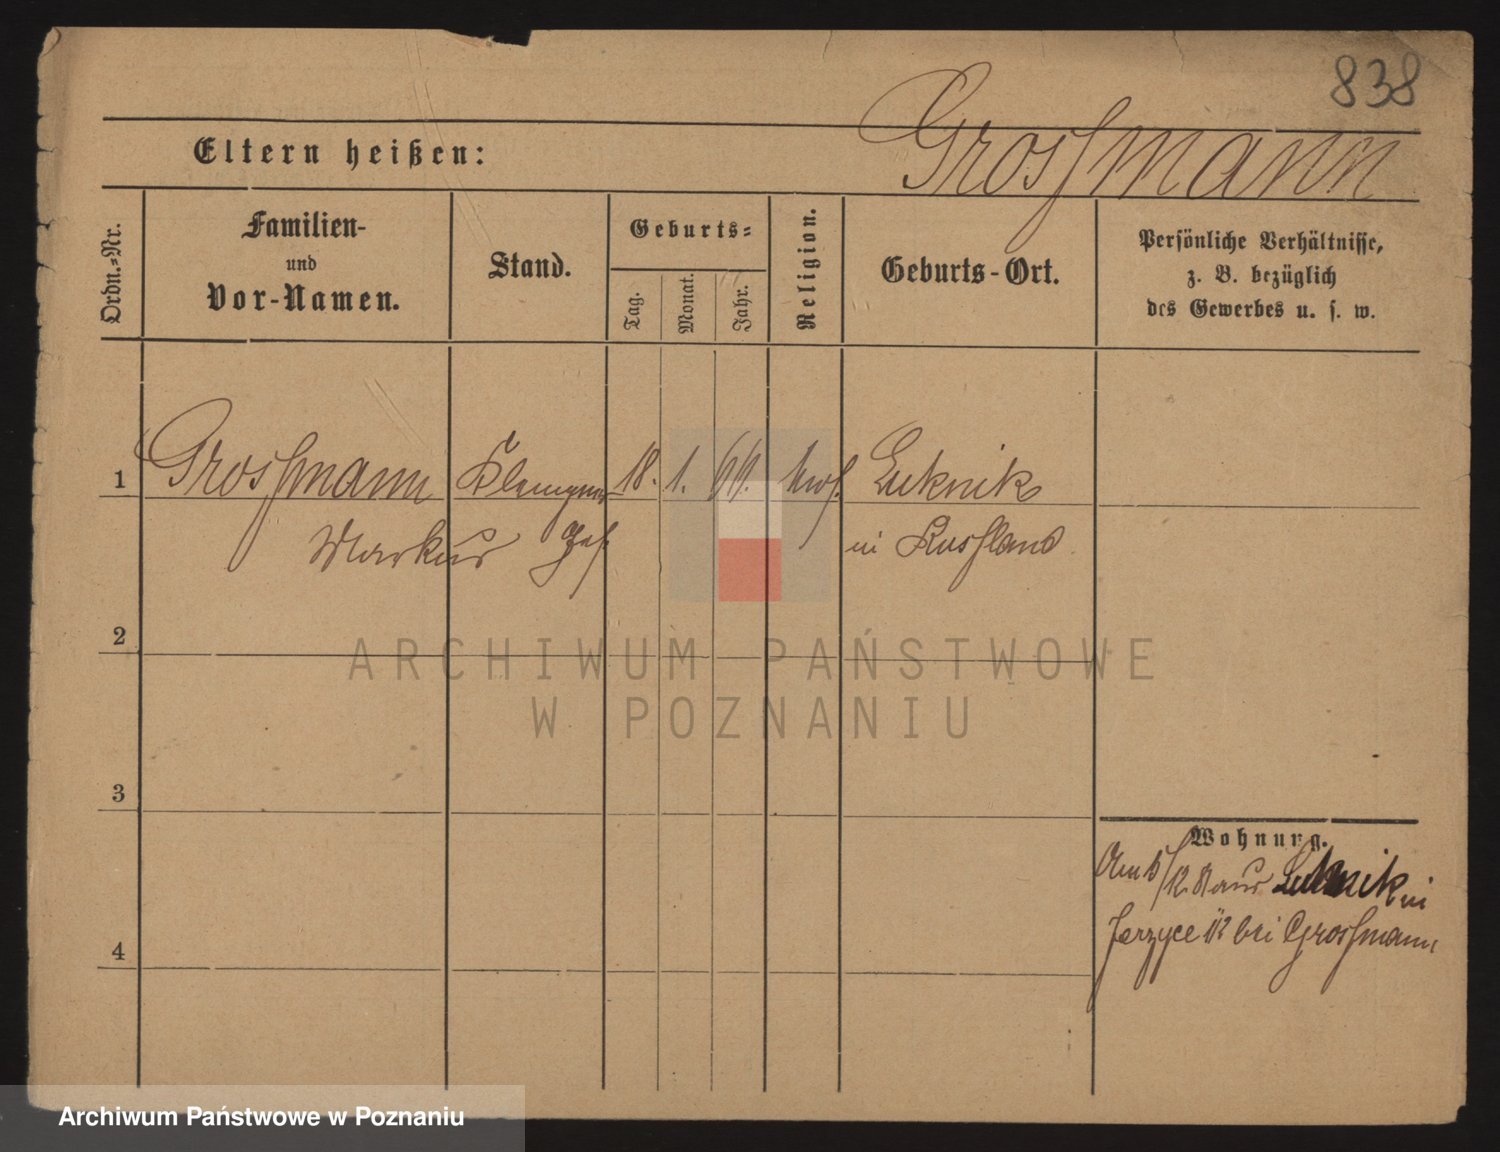 838
Eltern heißen:
Grossmann
Ordn.-Nr.
Familien-
und
Vor-Namen.
Stand.
Geburts-
Tag.
Monat.
Jahr.
Religion.
Geburts-Ort.
Persönliche Verhältnisse,
z. B. bezüglich
des Gewerbes u. s. w.
1
Grossmann
Klempner
18. 1. 66. mos.
Luknik
Markus
Ges.
in Russland
2
ARCHIWUM PAŃSTWOWE
W POZNANIU
3
Wohnung.
aus Luknik in
Jerzyce bei Grossmann
4
Archiwum Państwowe w Poznaniu